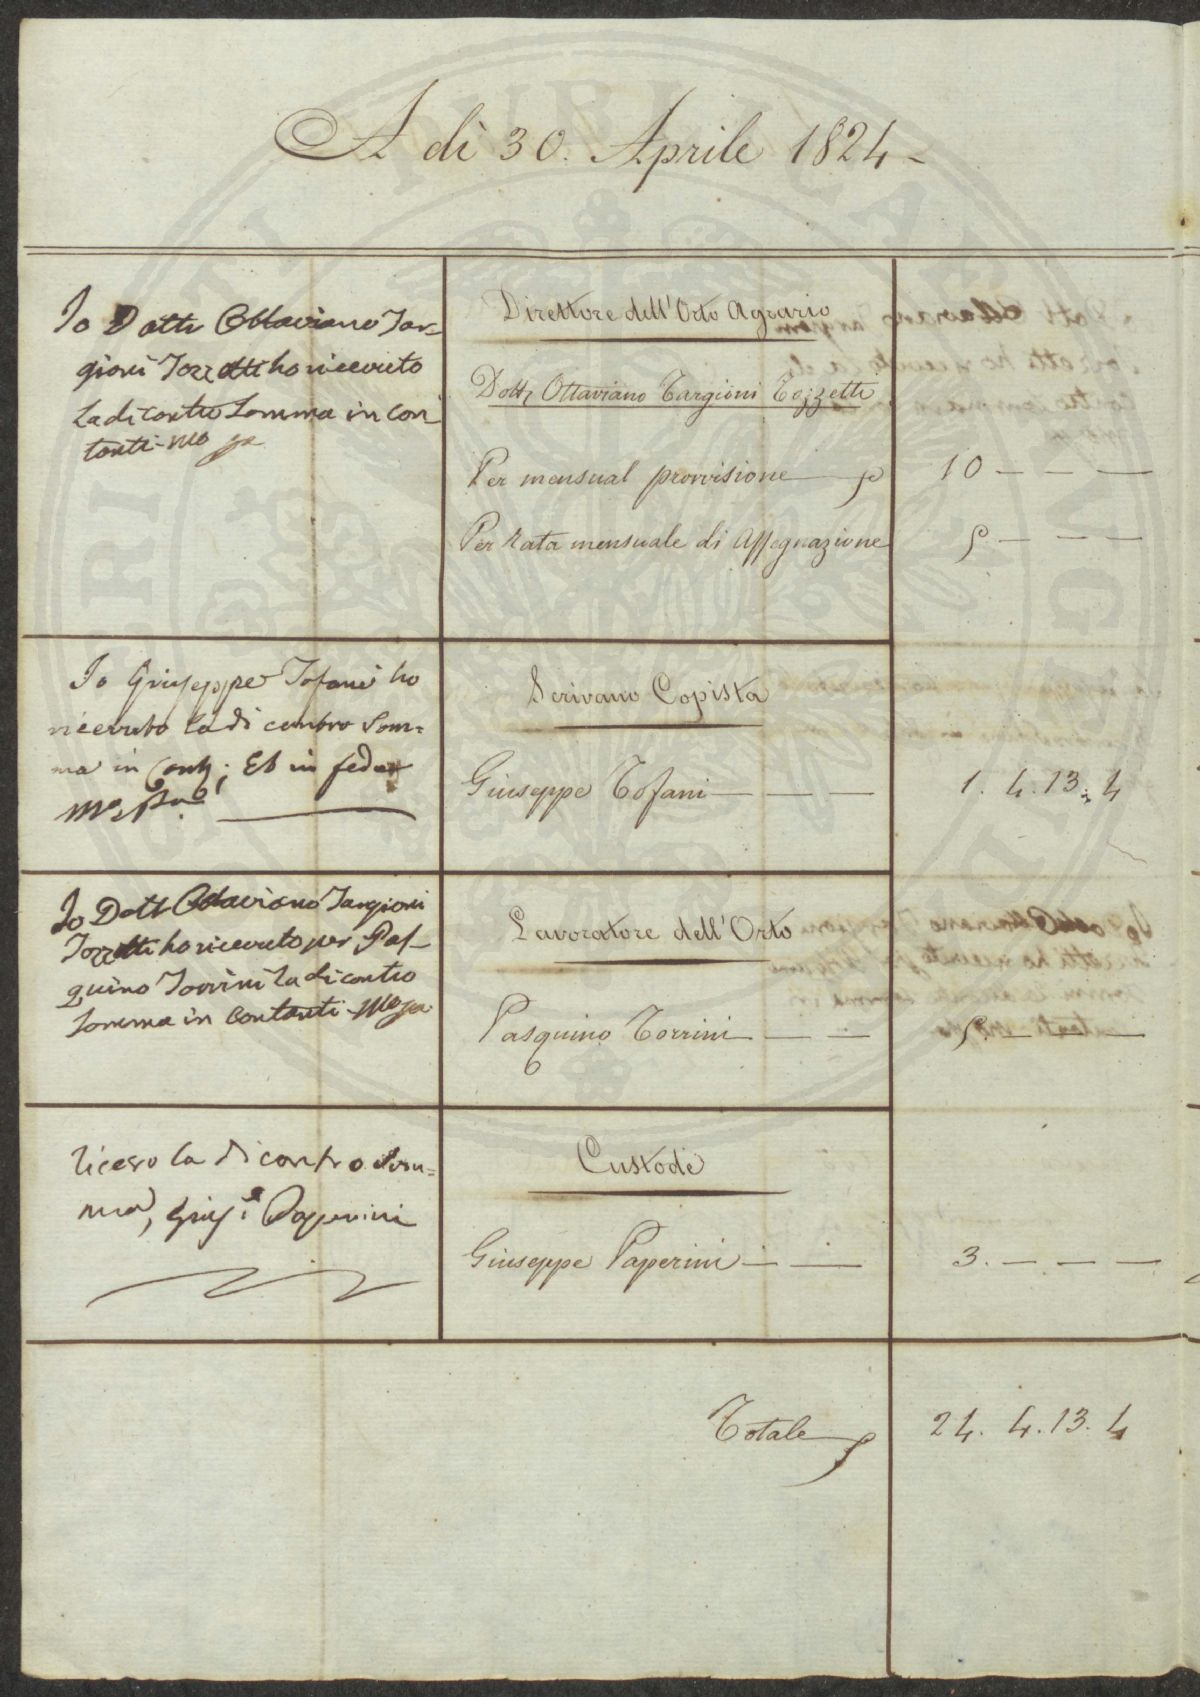 A dì 30. Aprile 1824 -
Io Dott Ottaviano Tar-
gioni Tozzetti ho ricevuto
la di contro Somma in con
tanti - mo pa
Direttore dell'Orto Agrario
Dott Ottaviano Targioni Tozzetti
Per mensual provvisione 10 — — —
Per Rata mensuale di Assegnazione 5. — — —
Io Giuseppe Tofani ho
ricevuto la di contro Som=
ma in Conti; Et in fede
mo pa
Scrivano Copista
Giuseppe Tofani — — — 1. 4. 13. 4
Io Dott Ottaviano Targioni
Tozzetti ho ricevuto per Pas-
quino Torrini la di contro
Somma in contanti - mo pa
Lavoratore dell'Orto
Pasquino Torrini — — — 5. — — —
ricevo la di contro Som=
ma, Gius.e Paperini
Custode
Giuseppe Paperini — — 3. — — —
Totale 24. 4. 13. 4